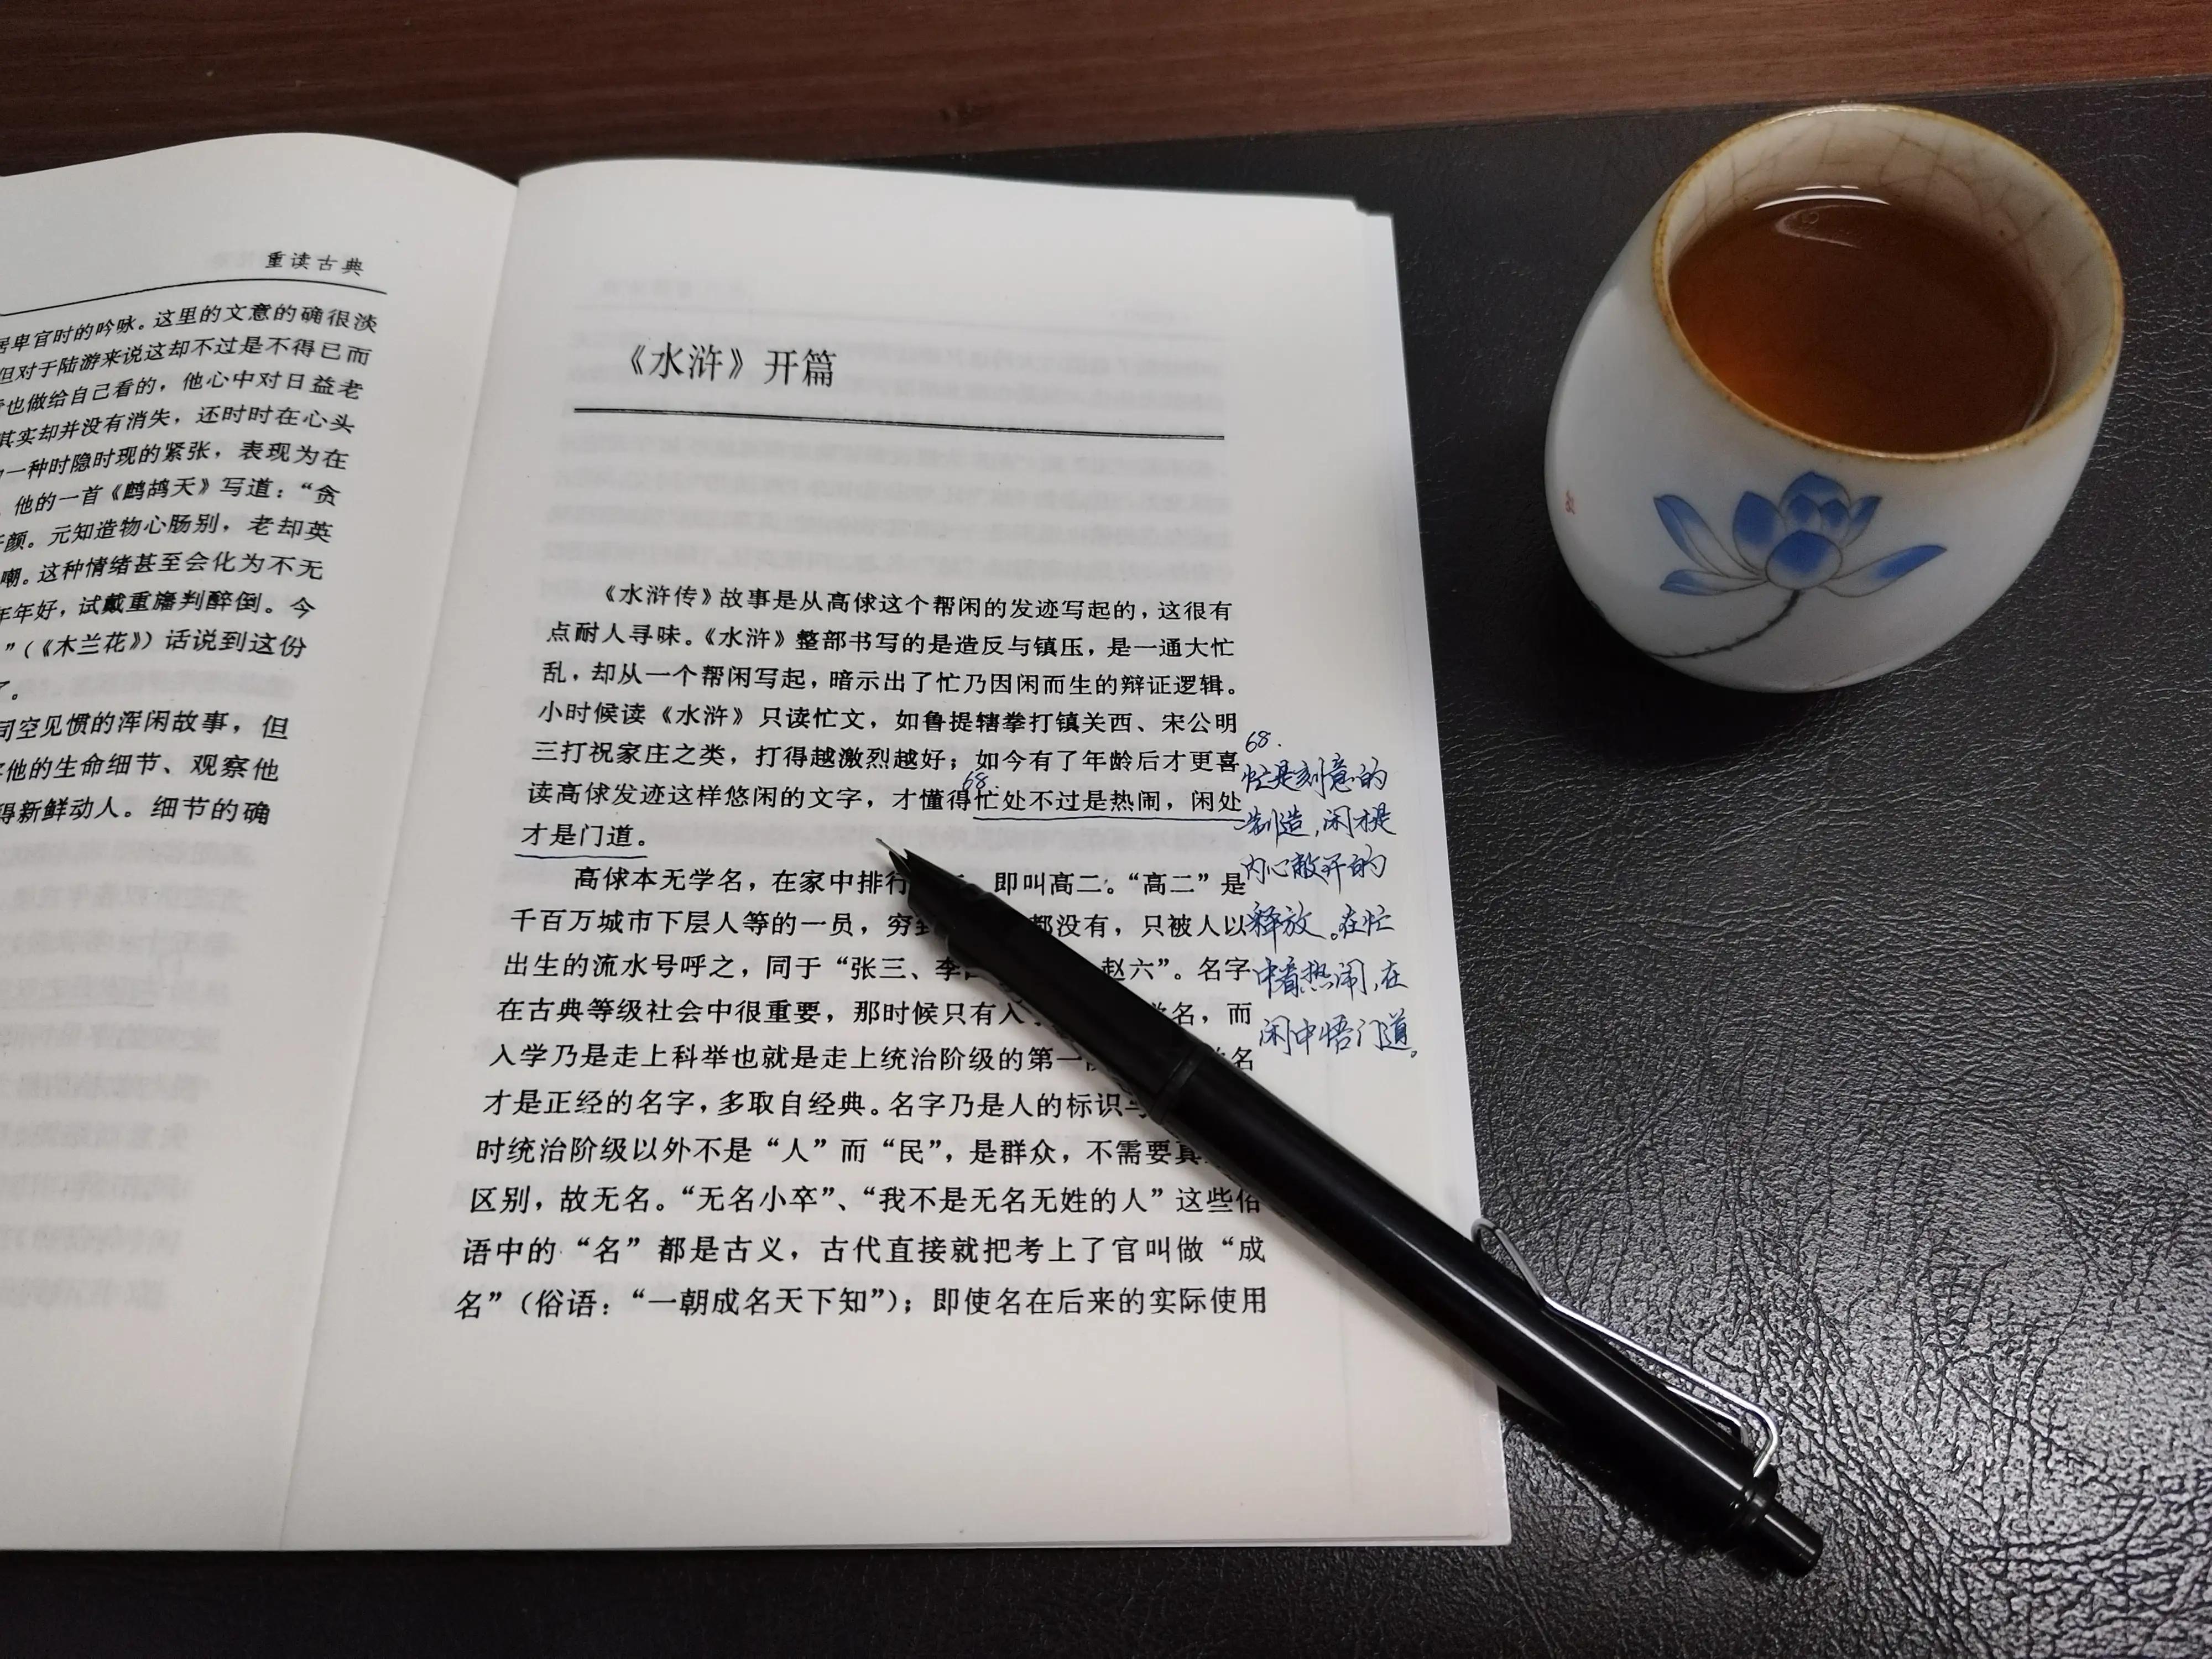 重读古典
居卑官时的吟咏。这里的文意的确很淡
但对于陆游来说这却不过是不得已而
也做给自己看的，他心中对日益老
其实却并没有消失，还时时在心头
一种时隐时现的紧张，表现为在
他的一首《鹧鸪天》写道：“贪
颜。元知造物心肠别，老却英
嘲。这种情绪甚至会化为不无
年年好，试戴重旛判醉倒。今
”（《木兰花》）话说到这份
了。
司空见惯的浑闲故事，但
他的生命细节、观察他
得新鲜动人。细节的确
《水浒》开篇
《水浒传》故事是从高俅这个帮闲的发迹写起的，这很有
点耐人寻味。《水浒》整部书写的是造反与镇压，是一通大忙
乱，却从一个帮闲写起，暗示出了忙乃因闲而生的辩证逻辑。
小时候读《水浒》只读忙文，如鲁提辖拳打镇关西、宋公明
三打祝家庄之类，打得越激烈越好；如今有了年龄后才更喜
68.
读高俅发迹这样悠闲的文字，才懂得忙处不过是热闹，闲处
才是门道。
高俅本无学名，在家中排行 即叫高二。“高二”是
千百万城市下层人等的一员，穷到 都没有，只被人以
出生的流水号呼之，同于“张三、李 赵六”。名字
在古典等级社会中很重要，那时候只有入 名，而
入学乃是走上科举也就是走上统治阶级的第一 名
才是正经的名字，多取自经典。名字乃是人的标识与
时统治阶级以外不是“人”而“民”，是群众，不需要真
区别，故无名。“无名小卒”、“我不是无名无姓的人”这些俗
语中的“名”都是古义，古代直接就把考上了官叫做“成
名”（俗语：“一朝成名天下知”）；即使名在后来的实际使用
68.
忙是刻意的
制造，闲才是
内心敞开的
释放。在忙
中看热闹，在
闲中悟门道。